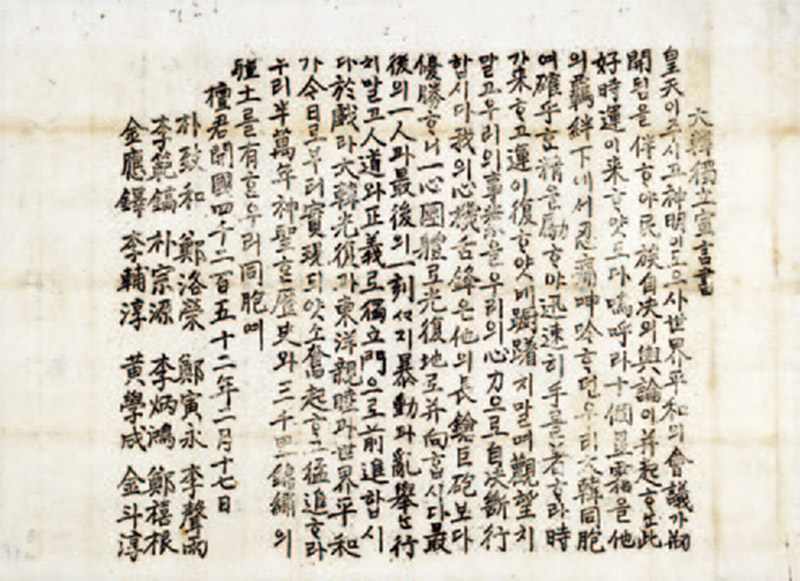 大韓獨立宣言書
皇天이주시고神明이도으사世界平和의會議가刱
開됨을伴ᄒᆞ야民族自决의輿論이幷起ᄒᆞᄂᆞᆫ此
好時運이来ᄒᆞ얏도다嗚呼라十個星霜을他
의羈絆下네서忍痛呻吟ᄒᆞ던우리大韓同胞
여確乎ᄒᆞᆫ精을勵ᄒᆞ야迅速히手를着ᄒᆞ라時
가来ᄒᆞ고運이復ᄒᆞ얏메躕躇지말며觀望치
말고우리의事業을우리의心力으로自决斷行
합시다我의心機舌鋒은他의長鎗巨砲보다
優勝ᄒᆞ니一心團體로光復地로幷向합시다最
後의一人과最後의一刻ᄭᆞ지暴動과亂擧난行
치말고人道와正義로獨立門으로前進합시
다於戲라大韓光復가東洋親睦과世界平和
가今日로부터實現되얏소奮起ᄒᆞ고猛進ᄒᆞ라
우리半萬年神聖ᄒᆞᆫ歷史와三千里錦繡의
疆土를有ᄒᆞᆫ우리同胞여
檀君開國四千二百五十二年二月十七日
朴致和 鄭洛榮 鄭寅永 李聲雨
李範鎬 朴宗源 李炳鴻 鄭禧根
金應鐸 李輔淳 黃學成 金斗淳